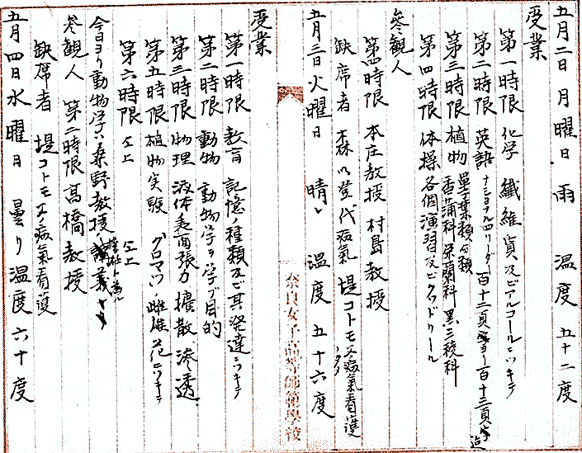 五月二日 月曜日 雨 温度 五十二度
受業
第一時限 化学 繊維質及ビアルコールニツキテ
第二時限 英語 ナショナル四リーダー 百十二頁ヨリ百十三頁迄
第三時限 植物 単子葉類分類 香蒲科 禾本科 黒三稜科
第四時限 体操 各個演習及ビクワドリール
参観人
第四時限 本庄教授 村島教授
缺席者 登代病氣 堤コトモ 病氣看護
五月三日 火曜日 晴 温度 五十六度
奈良女子高等師範學校
受業
第一時限 教育 記憶ノ種類及ビ其発達ニツキテ
第二時限 動物 動物学ヲ学ブ目的
第三時限 物理 液体表面張力 擴散 滲透
第五時限 植物実験 雌雄花ニツキテ
第六時限 仝上 仝上
今日ヨリ動物学ハ桑野教授
参観人 第二時限 高橋教授
缺席者 堤コトモ 病氣看護
五月四日 水曜日 曇リ 温度 六十度